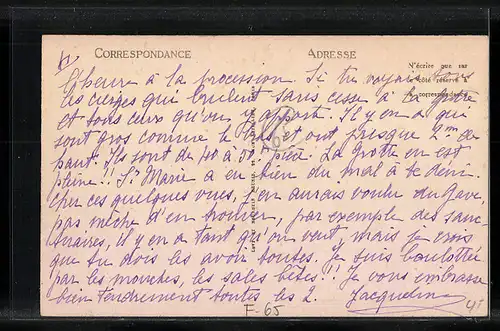 CORRESPONDANCE
ADRESSE
N'écrire que sur
le côté réservé à
la correspondance
et heure à la procession. Si tu voyais tous
les cierges qui brulent sans cesse à la grotte
et tous ceux qu'on y apporte. Il y en a qui
sont gros comme le bras et ont presque 2m de
haut. Ils sont de 40 à 50f pièce. La Grotte en est
pleine!! Sr Marie a eu bien du mal à te
ces quelques vues, j'en aurais voulu du Gave,
pas mèche d'en trouver, par exemple des sanc-
tuaires, il y en a tant qu'on veut mais je crois
que tu dois les avoir toutes. Je suis boulottée
par les mouches, les sales bêtes!! Je vous embrasse
bien tendrement toutes les 2. Jacqueline
F-65